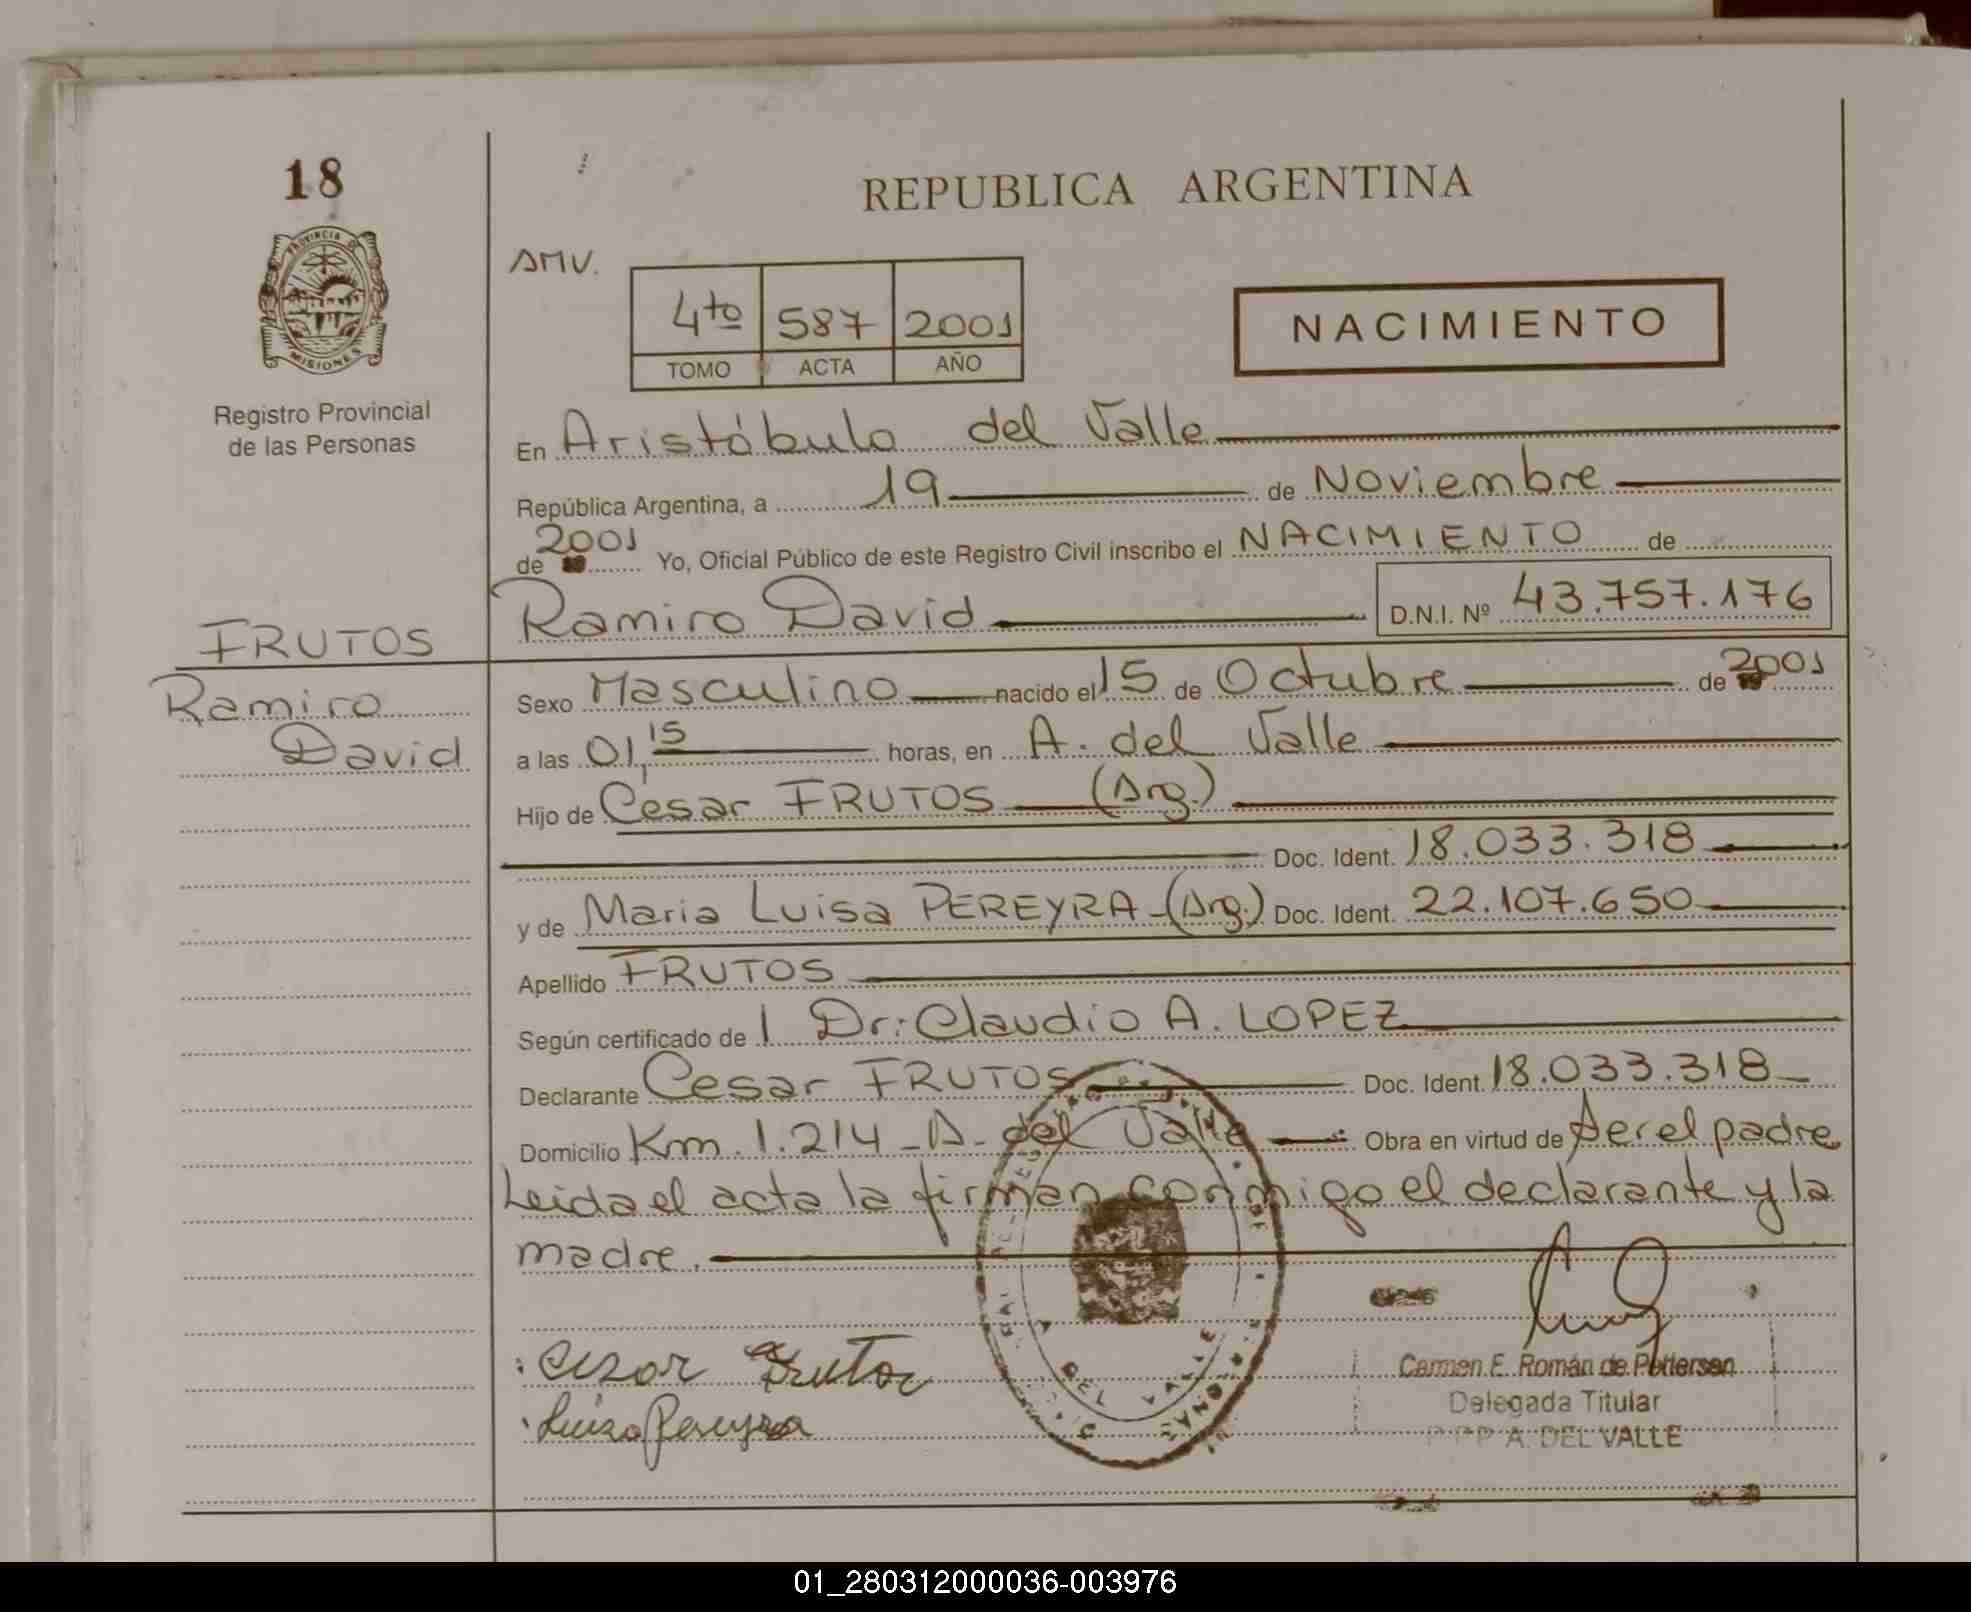 18
REPUBLICA ARGENTINA
PROVINCIA DE
MISIONES
AMV.
4to 587 2001
TOMO ACTA AÑO
NACIMIENTO
Registro Provincial
de las Personas
En Aristóbulo del Valle
República Argentina, a 19 de Noviembre
de 2001 Yo, Oficial Público de este Registro Civil inscribo el NACIMIENTO de
FRUTOS
Ramiro David D.N.I. Nº 43.757.176
Ramiro
David
Sexo Masculino nacido el 15 de Octubre de 2001
a las 01,15 horas, en A. del Valle
Hijo de Cesar FRUTOS (Arg.)
Doc. Ident. 18.033.318
y de Maria Luisa PEREYRA-(Arg.) Doc. Ident. 22.107.650
Apellido FRUTOS
Según certificado de l Dr: Claudio A. LOPEZ
Declarante Cesar FRUTOS Doc. Ident. 18.033.318
Domicilio Km. 1.214 - A. del Valle Obra en virtud de ser el padre
Leida el acta la firman conmigo el declarante y la
madre.
Cesar Frutos
Luisa Pereyra
DEL VALLE
Carmen E. Román de Pettersen
Delegada Titular
A. DEL VALLE
01_280312000036-003976